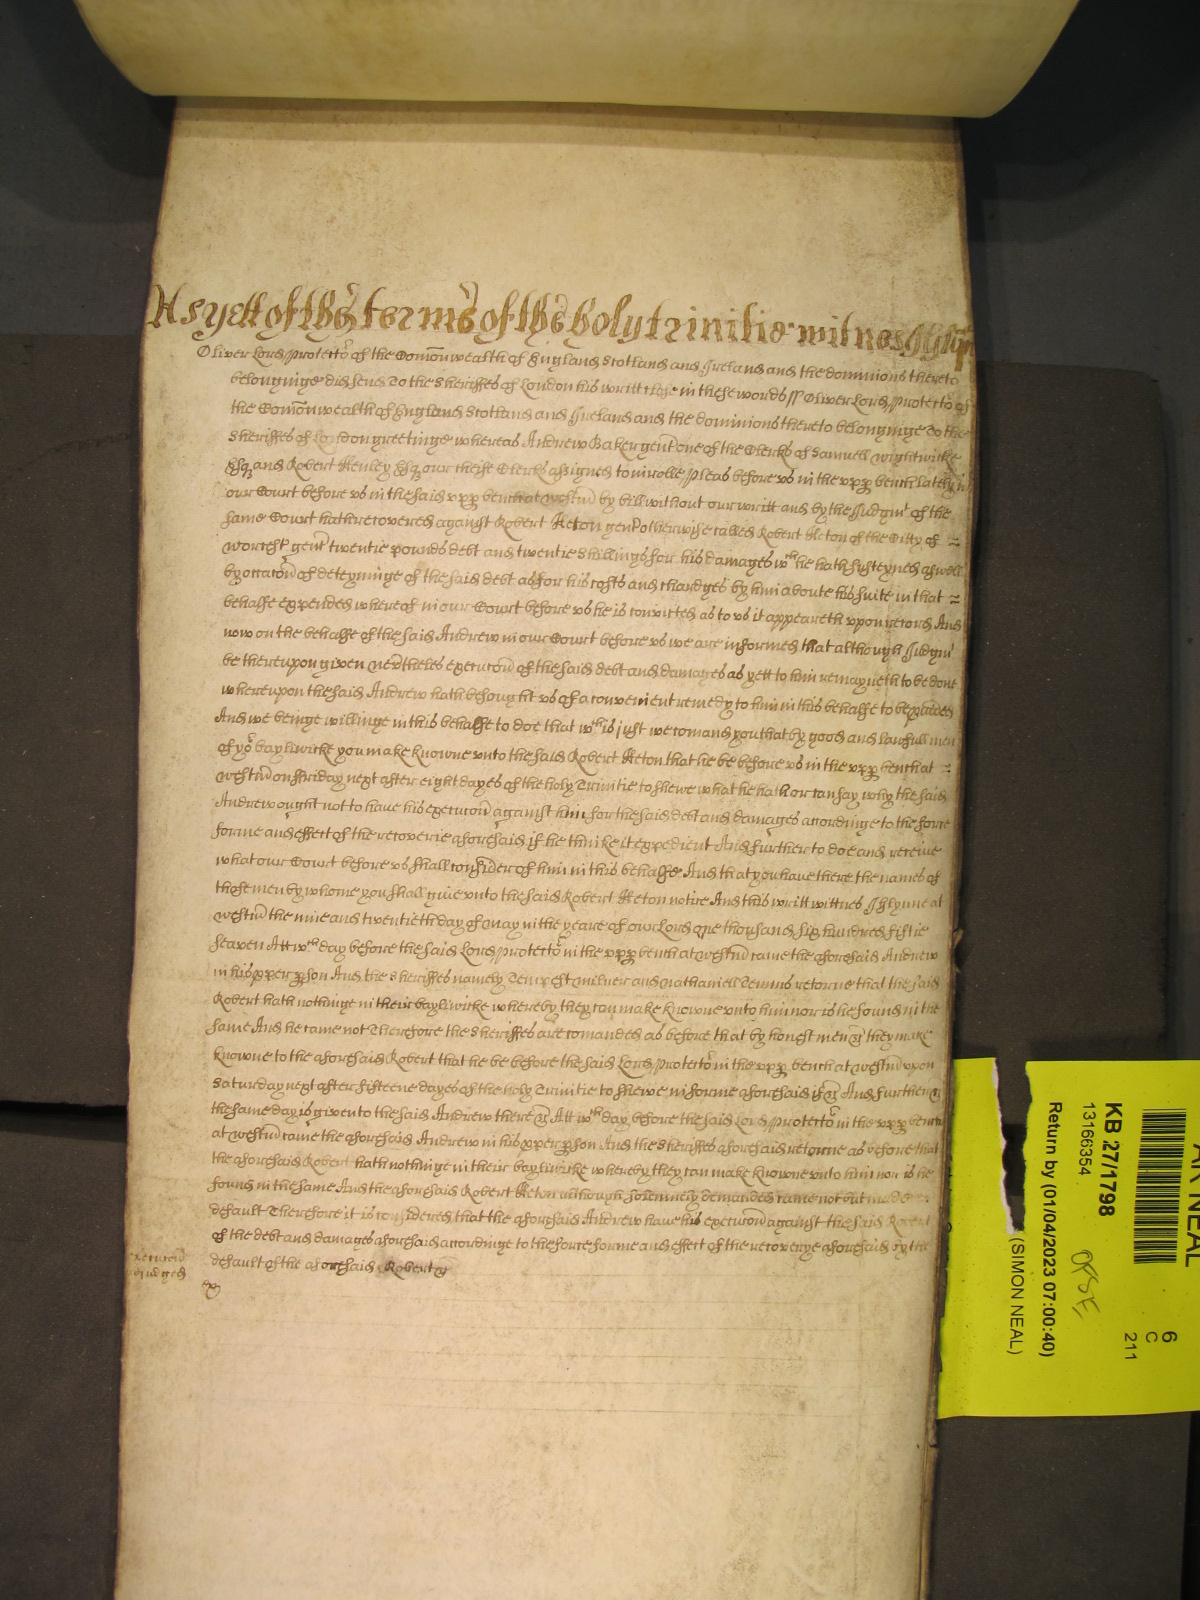 As yett of the terme of the holy trinitie witnes
Oliver Lord Protector of the Comonwealth of England Scotland and Ireland and the dominions thereto
belonginge did send to the sheriffes of London his writt close in these words // Oliver Lord Protector of
the Comonwealth of England Scotland and Ireland and the dominions thereto belonginge To the
sheriffes of London greetinge whereas Andrew Baker gent one of the Clerks of Samuell Wightwicke
Esq and Robert Henley Esq our cheife Clerke assigned to inrolle Pleas before us in the upp bench lately in
our Court before us in the said upp bench at westm by bill without our writt and by the Judgmt of the
same Court hath recovered against Robert Acton gent otherwise called Robert Acton of the Citty of =
worcest gent twentie pounds debt and twentie shillings for his damages wch he hath susteyned aswell
by occacon of deteyninge of the said debt as for his costs and chardges by him about his suite in that =
behalfe expended whereof in our Court before us he is convicted as to us it appeareth upon record And
now on the behalfe of the said Andrew in our Court before us we are informed that although Judgmt
be thereupon given nevtheles execucon of the said debt and damages as yett to him remayneth to be done
whereupon the said Andrew hath besought us of a convenient remedy to him in this behalfe to be pvided
And we beinge willinge in this behalfe to doe that wch is just we comand you that by good and lawfull men
of yor bayliwicke you make knowne unto the said Robert Acton that he be before us in the upp bench at =
westm on friday next after eight dayes of the holy Trinitie to shewe what he hath or can say why the said
Andrew ought not to have his execucon against him for the said debt and damages accordinge to the force
forme and effect of the recoverie aforesaid if he thinke it expedient And further to doe and receive
what our Court before us shall consider of him in this behalfe And that you have there the names of
those men by whome you shall give unto the said Robert Acton notice And this writt wittnes J Glynne at
westm the nine and twentieth day of May in the yeare of our Lord One thousand six hundred fiftie
seaven Att wch day before the said Lord Protector in the upp bench at westm came the aforesaid Andrew
in his pper pson And the sheriffes namely Tempest Milner and Nathaniell Temms retorne that the said
Robert hath nothinge in their bayliwicke whereby they can make knowne unto him nor is he found in the
same And he came not Therefore the sheriffes are comanded as before that by honest men &c they make
knowne to the aforesaid Robert that he be before the said Lord Protector in the upp bench at westm upon
Saturday next after fifteene dayes of the holy Trinitie to shewe in forme aforesaid if &c And further &c
the same day is given to the said Andrew there &c Att wch day before the said Lord Protector in the upp bench
at westm came the aforesaid Andrew in his pper pson And the sheriffes aforesaid retorne as before that
the aforesaid Robert hath nothinge in their bayliwicke whereby they can make knowne unto him nor is he
found in the same And the aforesaid Robert Acton although solemnely demanded came not but made
default Therefore it is considered that the aforesaid Andrew have his execucon against the said Robert
of the debt and damages aforesaid accordinge to the force forme and effect of the recoverye aforesaid by the
default of the aforesaid Robert &c
Execucon
Adjudged
AR NEAL
6
C
211
KB 27/1798
13166354
Return by (01/04/2023 07:00:40)
(SIMON NEAL)